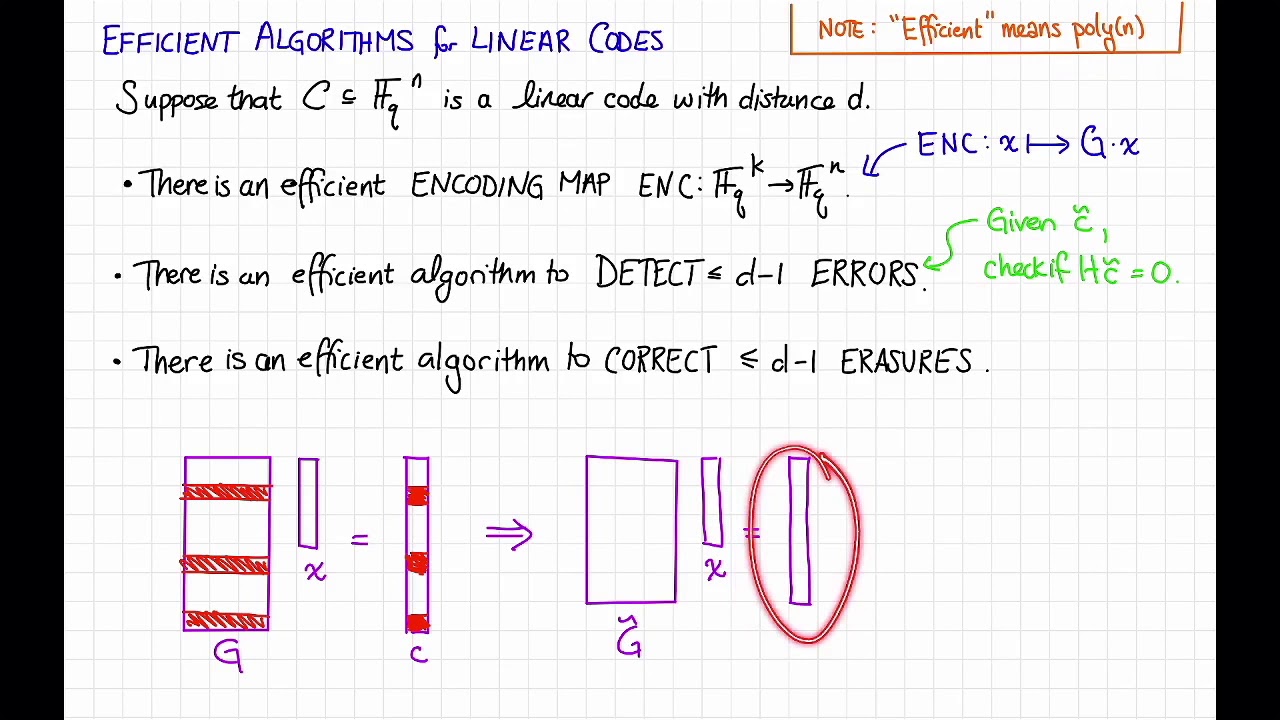 EFFICIENT ALGORITHMS for LINEAR CODES
NOTE: "Efficient" means poly(n)
Suppose that C ⊆ 𝔽_q^n is a linear code with distance d.
ENC: x ↦ G·x
• There is an efficient ENCODING MAP ENC: 𝔽_q^k → 𝔽_q^n.
Given c̃,
• There is an efficient algorithm to DETECT ≤ d-1 ERRORS.
check if Hc̃ = 0.
• There is an efficient algorithm to CORRECT ≤ d-1 ERASURES.
= ⇒ =
x x
G c G̃